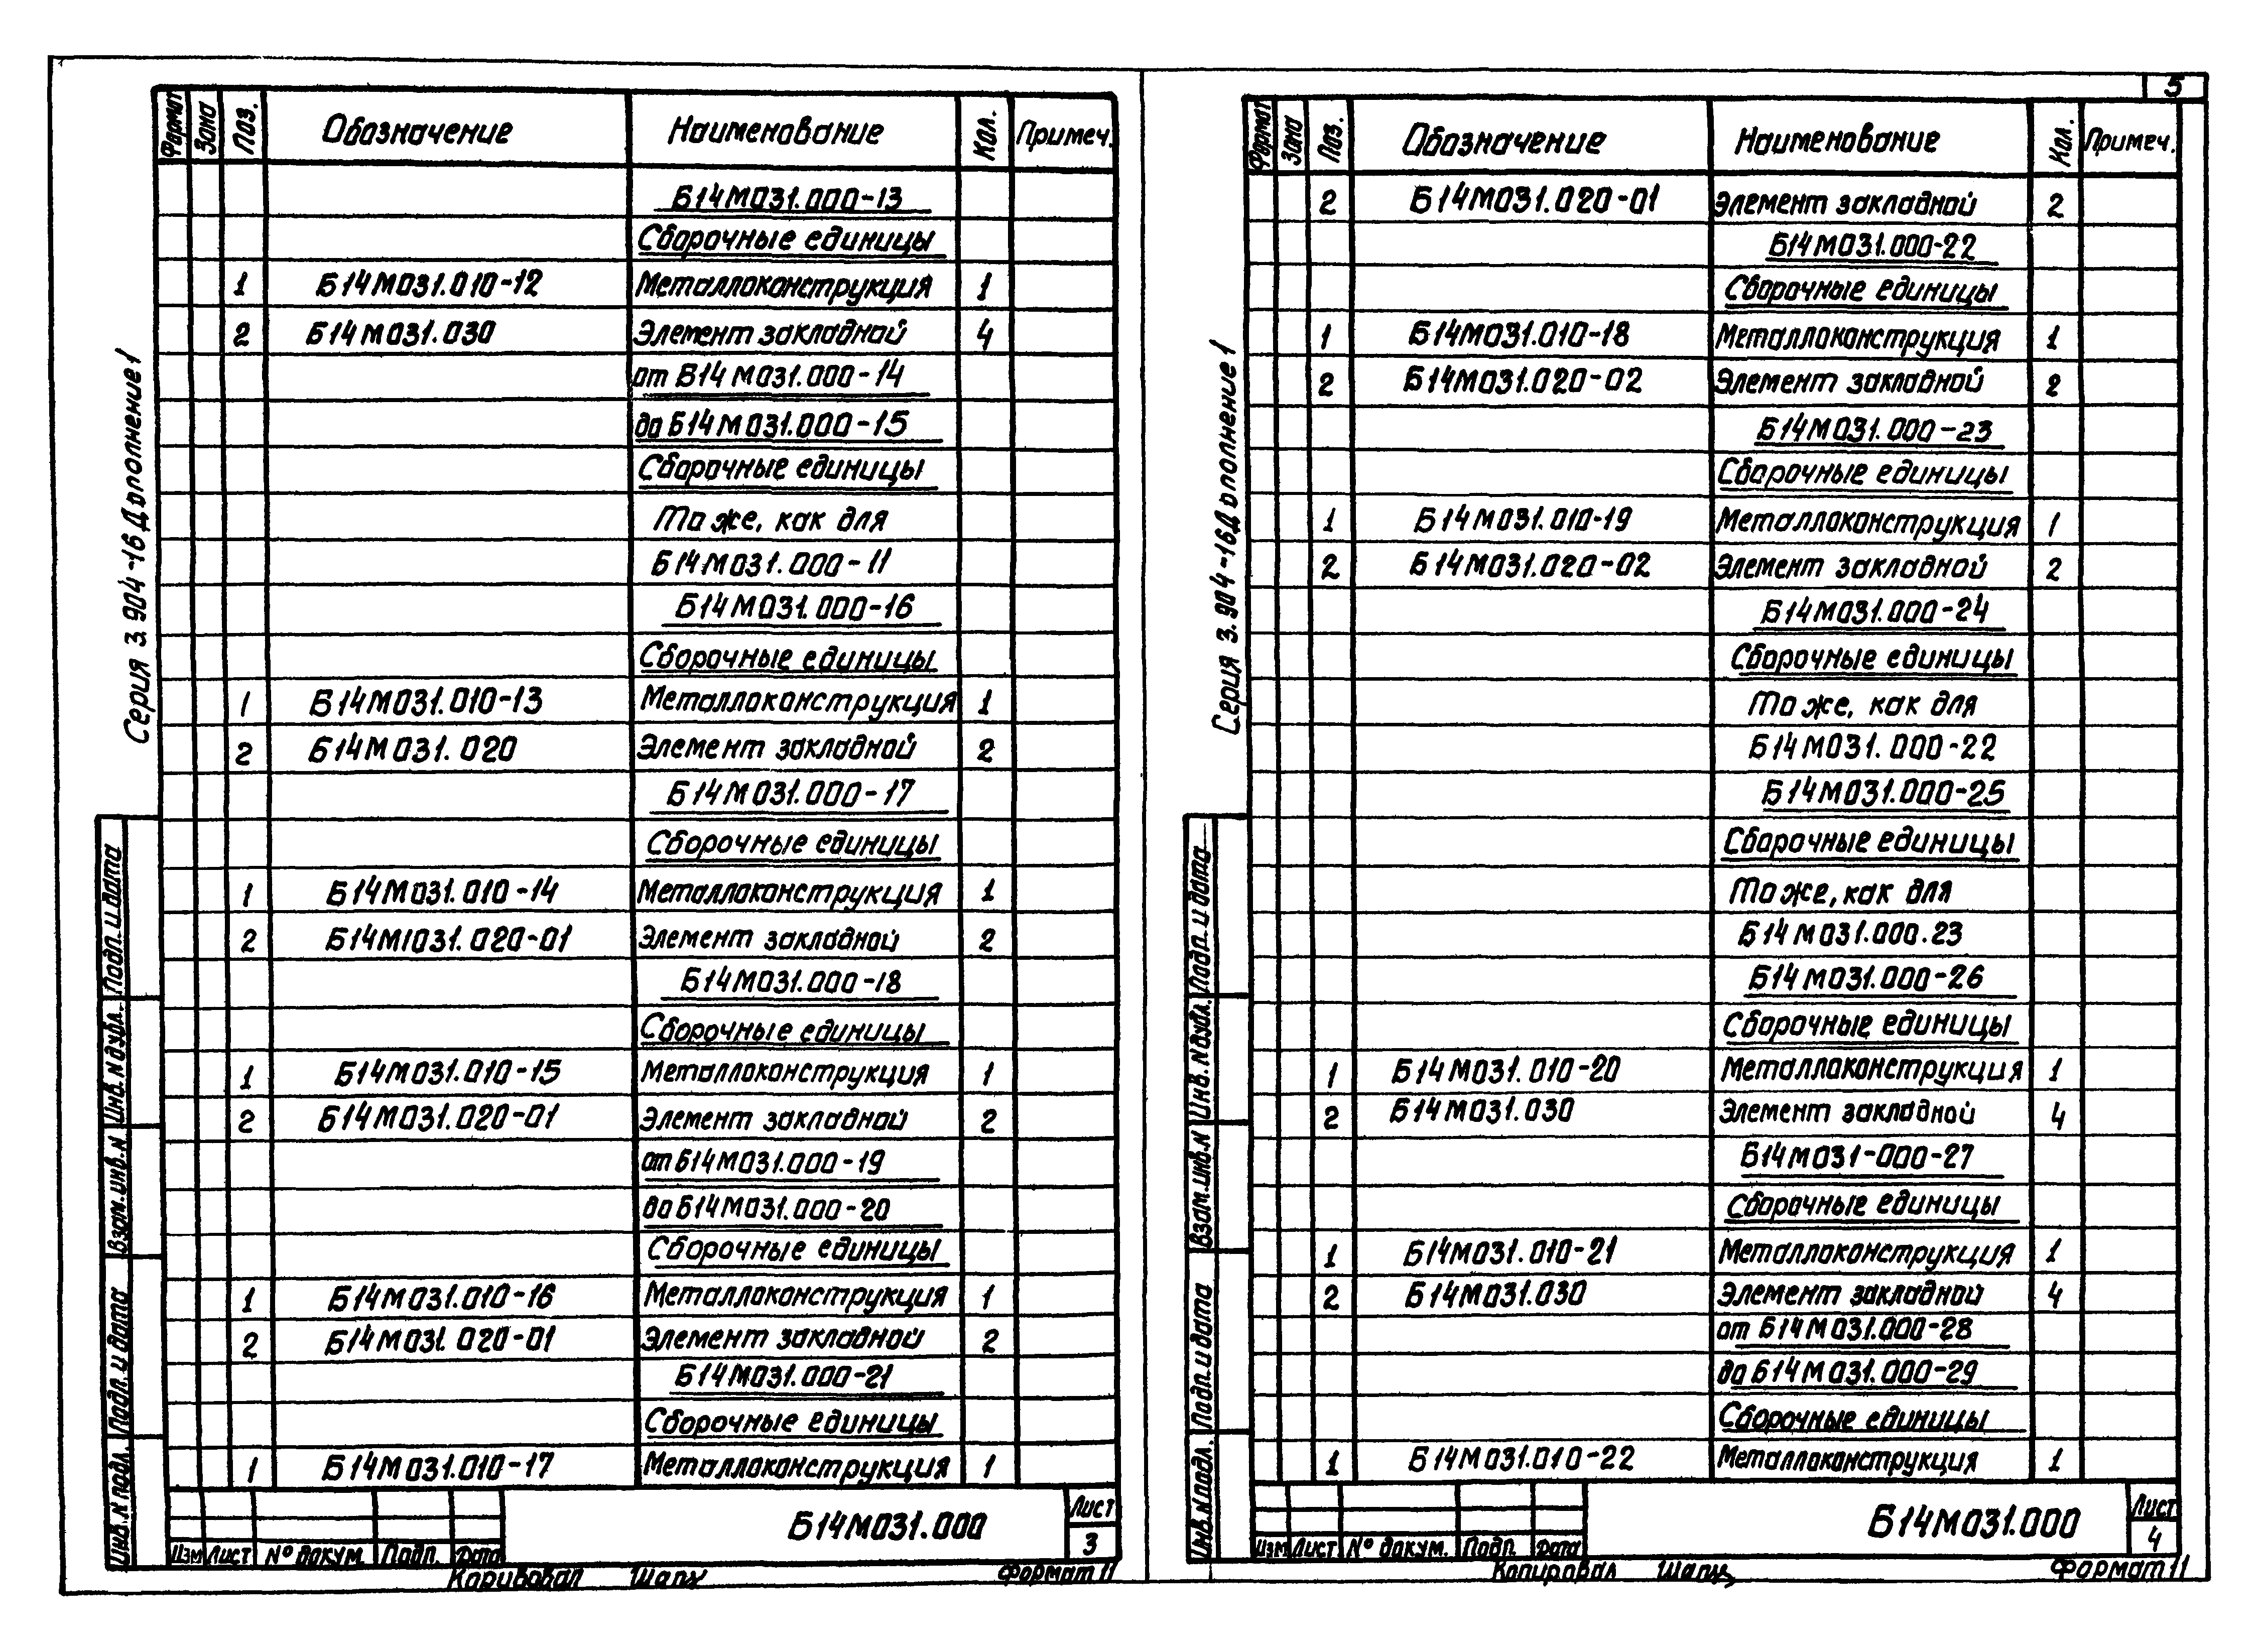 5
Серия 3.904-16 Дополнение 1
Формат Зона Поз. Обозначение Наименование Кол. Примеч.
Б14М031.000-13
Сборочные единицы
1 Б14М031.010-12 Металлоконструкция 1
2 Б14М031.030 Элемент закладной 4
от Б14М031.000-14
до Б14М031.000-15
Сборочные единицы
То же, как для
Б14М031.000-11
Б14М031.000-16
Сборочные единицы
1 Б14М031.010-13 Металлоконструкция 1
2 Б14М031.020 Элемент закладной 2
Б14М031.000-17
Сборочные единицы
1 Б14М031.010-14 Металлоконструкция 1
2 Б14М031.020-01 Элемент закладной 2
Б14М031.000-18
Сборочные единицы
1 Б14М031.010-15 Металлоконструкция 1
2 Б14М031.020-01 Элемент закладной 2
от Б14М031.000-19
до Б14М031.000-20
Сборочные единицы
1 Б14М031.010-16 Металлоконструкция 1
2 Б14М031.020-01 Элемент закладной 2
Б14М031.000-21
Сборочные единицы
1 Б14М031.010-17 Металлоконструкция 1
Инв.N подл. Подп. и дата Взам.инв.N Инв.N дубл. Подп. и дата
Изм Лист N° докум. Подп. Дата
Б14М031.000
Лист
3
Копировал Формат 11
Серия 3.904-16 Дополнение 1
Формат Зона Поз. Обозначение Наименование Кол. Примеч.
2 Б14М031.020-01 Элемент закладной 2
Б14М031.000-22
Сборочные единицы
1 Б14М031.010-18 Металлоконструкция 1
2 Б14М031.020-02 Элемент закладной 2
Б14М031.000-23
Сборочные единицы
1 Б14М031.010-19 Металлоконструкция 1
2 Б14М031.020-02 Элемент закладной 2
Б14М031.000-24
Сборочные единицы
То же, как для
Б14М031.000-22
Б14М031.000-25
Сборочные единицы
То же, как для
Б14М031.000.23
Б14М031.000-26
Сборочные единицы
1 Б14М031.010-20 Металлоконструкция 1
2 Б14М031.030 Элемент закладной 4
Б14М031-000-27
Сборочные единицы
1 Б14М031.010-21 Металлоконструкция 1
2 Б14М031.030 Элемент закладной 4
от Б14М031.000-28
до Б14М031.000-29
Сборочные единицы
1 Б14М031.010-22 Металлоконструкция 1
Инв.N подл. Подп. и дата Взам.инв.N Инв.N дубл. Подп. и дата
Изм Лист N° докум. Подп. Дата
Б14М031.000
Лист
4
Копировал Формат 11